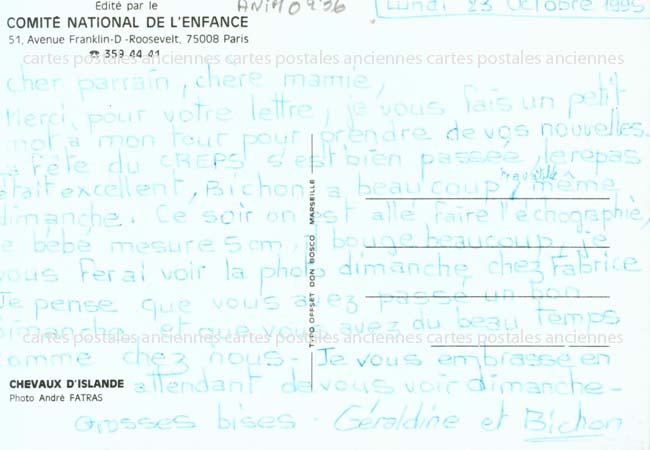 Édité par le
COMITÉ NATIONAL DE L'ENFANCE
51, Avenue Franklin-D.-Roosevelt, 75008 Paris
☎ 359 44 41
ANIM0936
Lundi 23 Octobre 1995
cartes postales anciennes cartes postales anciennes cartes postales anciennes
cher parrain, chère mamie,
Merci pour votre lettre, je vous fais un petit
mot a mon tour pour prendre de vos nouvelles.
La fête du CREPS s'est bien passée, le repas
était excellent, Bichon a beaucoup travaillé, même
dimanche. Ce soir on est allé faire l'échographie,
le bébé mesure 5cm, bouge beaucoup, je
vous ferai voir la photo dimanche chez Fabrice
Je pense que vous avez passé un bon
Dimanche et que vous avez du beau temps
cartes postales anciennes cartes postales anciennes cartes postales anciennes
comme chez nous - Je vous embrasse en
attendant de vous voir dimanche -
Grosses bises - Géraldine et Bichon
TYPO OFFSET DON BOSCO MARSEILLE
CHEVAUX D'ISLANDE
Photo André FATRAS